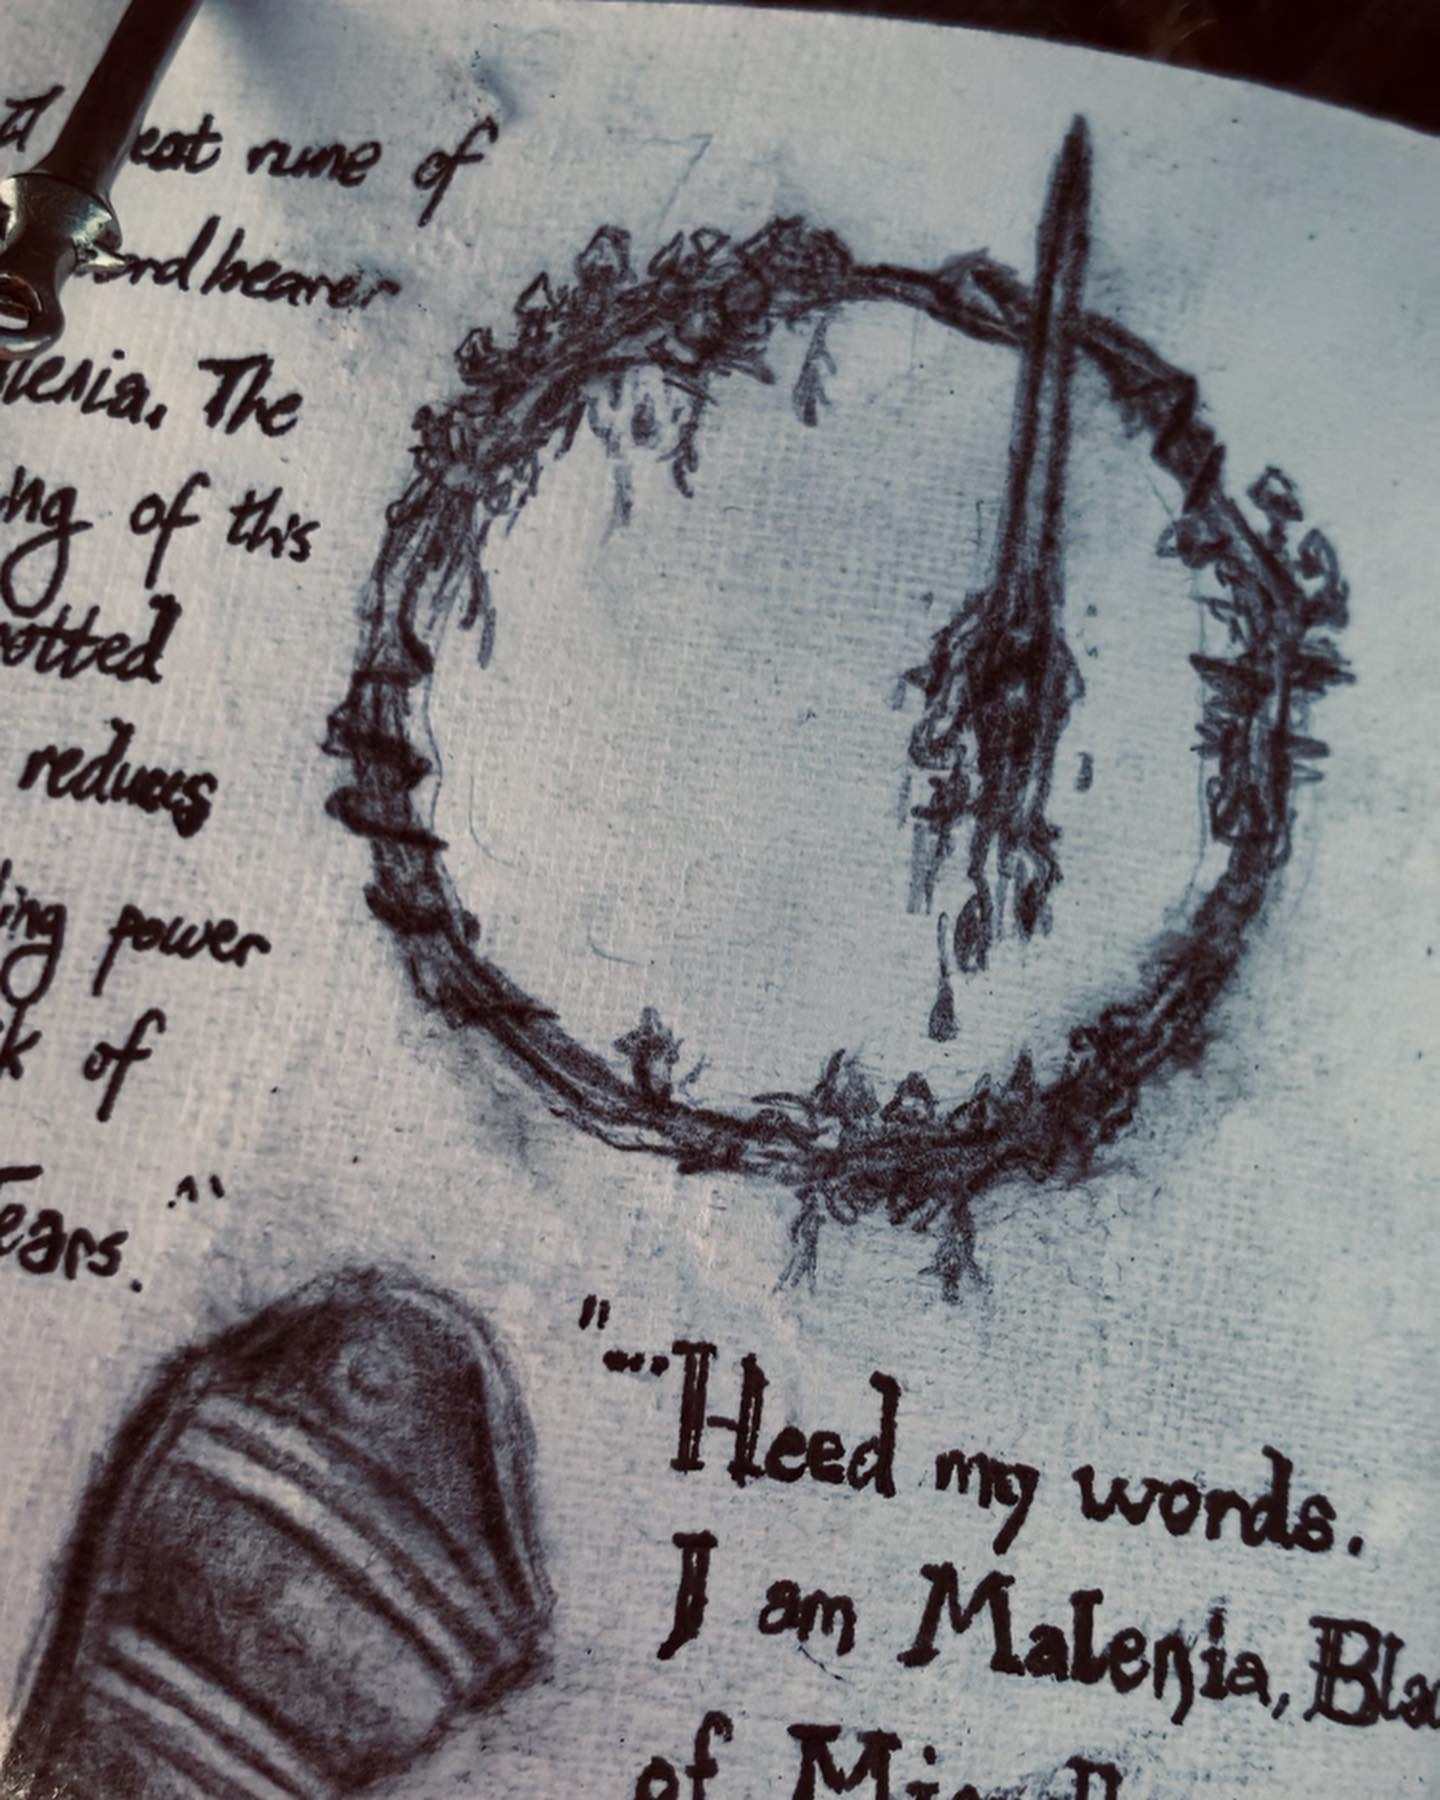 A eat rune of
ordbearer
lenia. The
ng of this
otted
reduces
ing power
k of
ears."
"...Heed my words.
I am Malenia, Bla
of